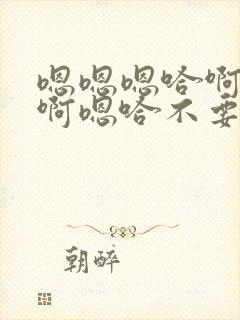 嗯嗯嗯哈啊
啊嗯哈不要
朝醉